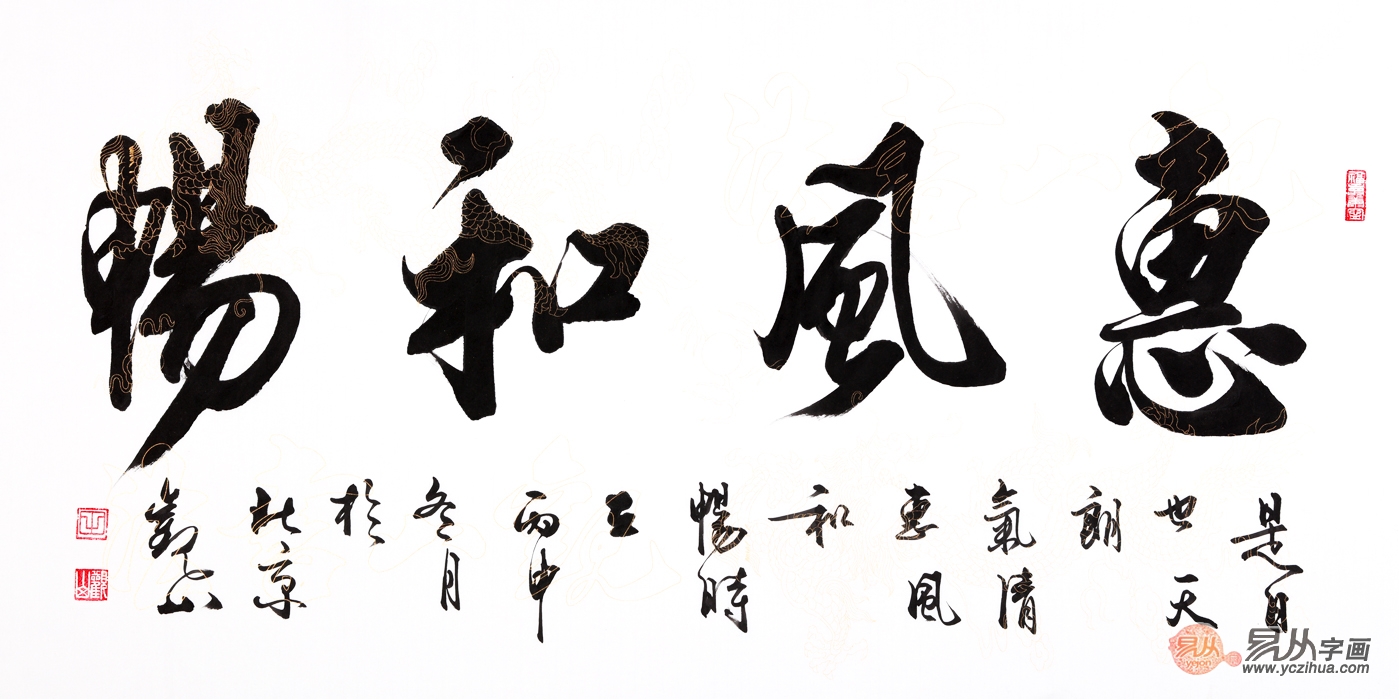 惠風和暢
是日
也天
朗
氣清
惠風
和
暢時
丙申
冬月
於
北京
觀山
易从字画
www.yczihua.com